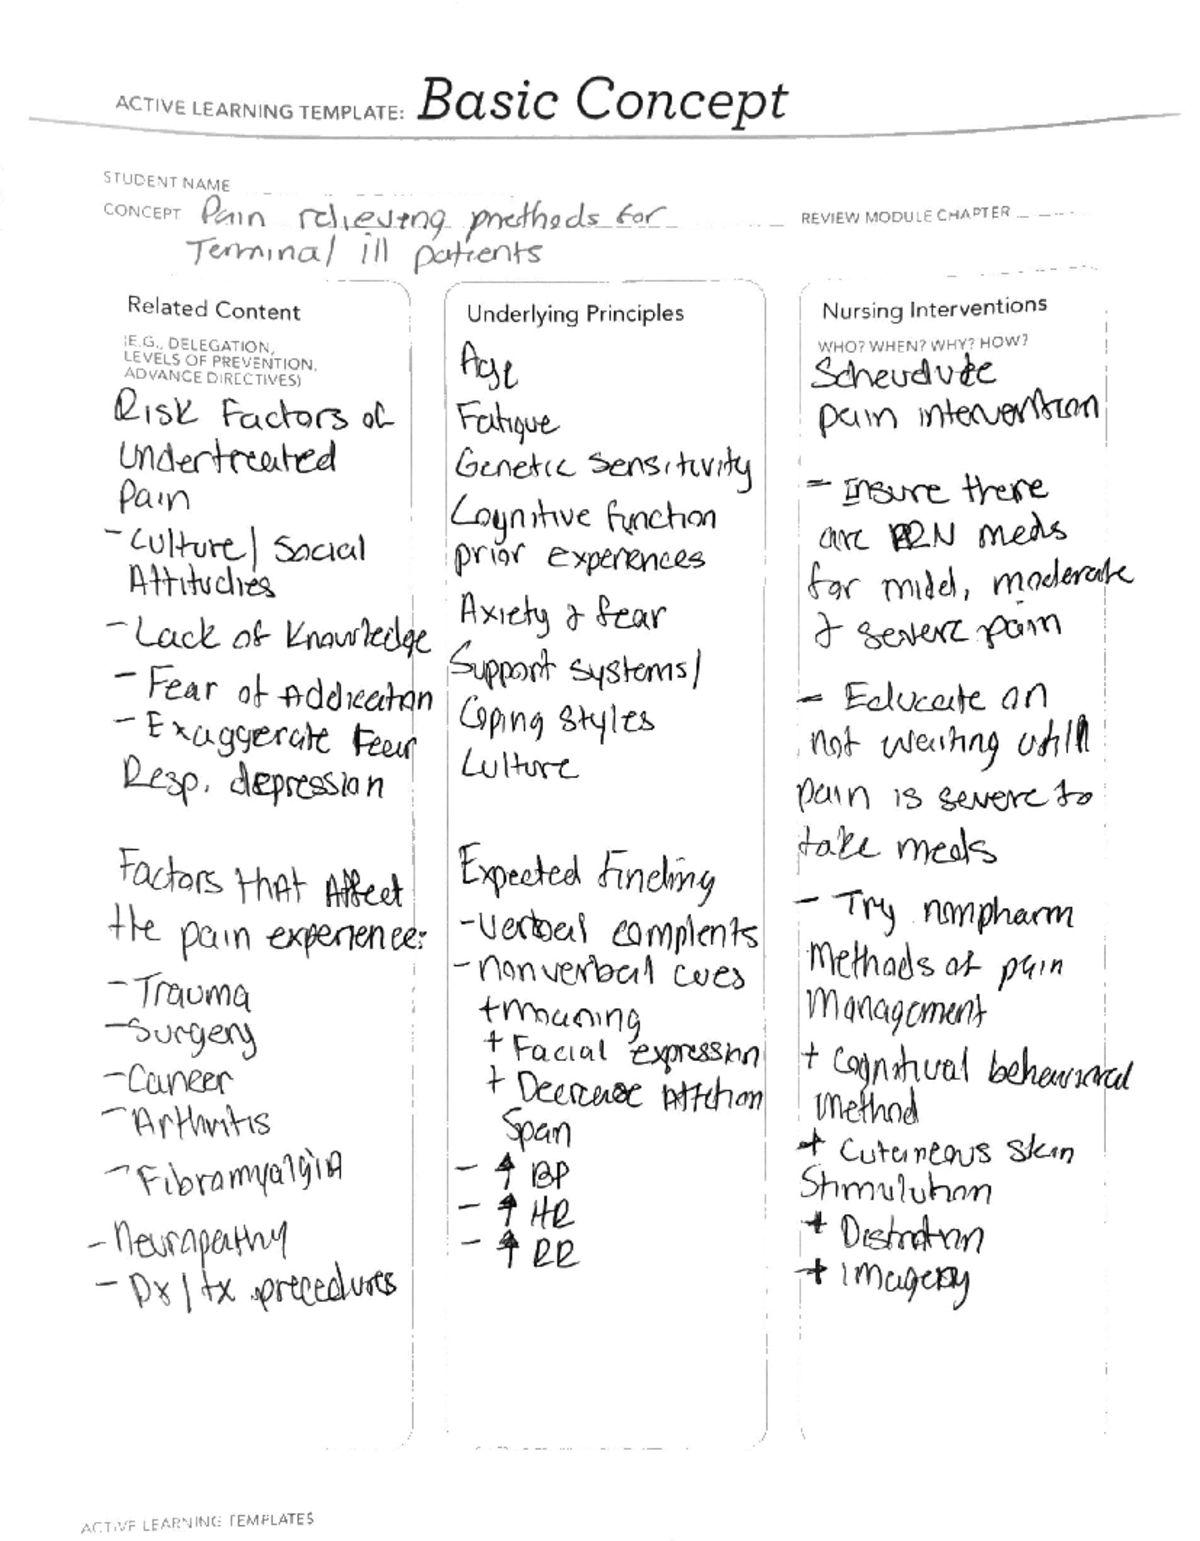 ACTIVE LEARNING TEMPLATE: Basic Concept
STUDENT NAME
CONCEPT Pain relieving methods for
Terminal ill patients
REVIEW MODULE CHAPTER
Related Content
(E.G., DELEGATION,
LEVELS OF PREVENTION,
ADVANCE DIRECTIVES)
Risk Factors of
Undertreated
Pain
- Culture/ Social
Attitudies
- Lack of Knowledge
- Fear of Addication
- Exaggerate Fear
Resp. depression
Factors that Affect
the pain experience:
- Trauma
- Surgery
- Cancer
- Arthritis
- Fibromyalgia
- Neuropathy
- Dx/tx procedures
Underlying Principles
Age
Fatigue
Genetic Sensitivity
Cognitive function
prior experiences
Axiety & fear
Support systems/
Coping Styles
Culture
Expected Finding
- Verbal complents
- nonverbal cues
+ moaning
+ Facial expression
+ Decrease Attention
Span
- ↑ BP
- ↑ HR
- ↑ RR
Nursing Interventions
WHO? WHEN? WHY? HOW?
pain intervention
- Insure there
are PRN meds
for mild, moderate
& severe pain
- Educate on
not waiting until
pain is severe to
take meds
- Try nonpharm
Methods of pain
Management
+ Cognitival behavioral
method
+ Cutaneous skin
Stimulation
+ Distration
+ imagery
ACTIVE LEARNING TEMPLATES